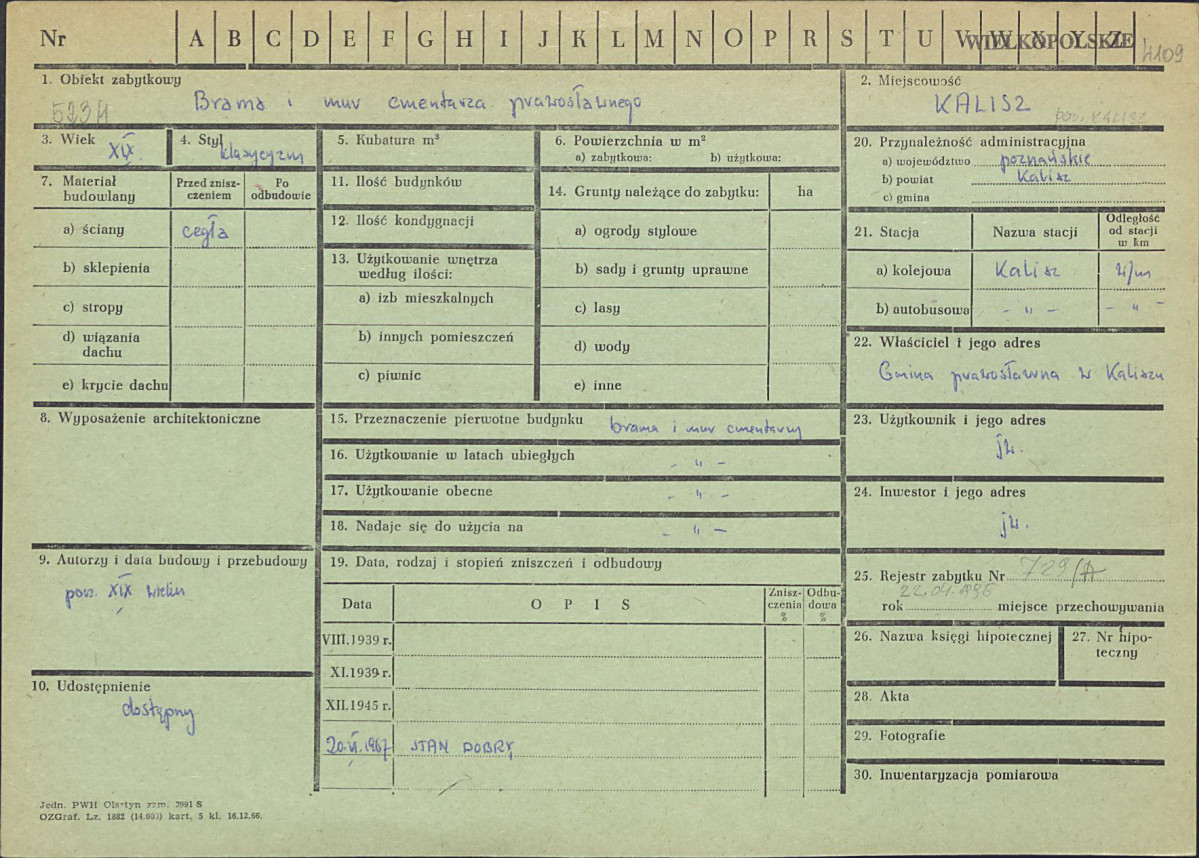 Nr A B C D E F G H I J K L M N O P R S T U V W X Y Z
WIELKOPOLSKIE
4109
1. Obiekt zabytkowy
523/4
Brama i mur cmentarza prawosławnego
2. Miejscowość
KALISZ
pow. KALISZ
3. Wiek
XIX
4. Styl
klasycyzm
5. Kubatura m³
6. Powierzchnia w m²
a) zabytkowa: b) użytkowa:
20. Przynależność administracyjna
a) województwo poznańskie
b) powiat Kalisz
c) gmina
7. Materiał budowlany
Przed znisz-
czeniem
Po
odbudowie
a) ściany cegła
b) sklepienia
c) stropy
d) wiązania
dachu
e) krycie dachu
11. Ilość budynków
12. Ilość kondygnacji
13. Użytkowanie wnętrza
według ilości:
a) izb mieszkalnych
b) innych pomieszczeń
c) piwnic
14. Grunty należące do zabytku: ha
a) ogrody stylowe
b) sady i grunty uprawne
c) lasy
d) wody
e) inne
21. Stacja Nazwa stacji
Odległość
od stacji
w km
a) kolejowa Kalisz w/m
b) autobusowa - „ - - „ -
22. Właściciel i jego adres
Gmina prawosławna w Kaliszu
8. Wyposażenie architektoniczne
15. Przeznaczenie pierwotne budynku brama i mur cmentarny
16. Użytkowanie w latach ubiegłych - „ -
17. Użytkowanie obecne - „ -
18. Nadaje się do użycia na - „ -
23. Użytkownik i jego adres
jw.
24. Inwestor i jego adres
jw.
9. Autorzy i data budowy i przebudowy
pocz. XIX wieku
19. Data, rodzaj i stopień zniszczeń i odbudowy
Data O P I S
Znisz-
czenia
%
Odbu-
dowa
%
VIII.1939 r.
XI.1939 r.
XII.1945 r.
20.VI.1967 STAN DOBRY
10. Udostępnienie
dostępny
25. Rejestr zabytku Nr 729/A
22.04.1996
rok miejsce przechowywania
26. Nazwa księgi hipotecznej
27. Nr hipo-
teczny
28. Akta
29. Fotografie
30. Inwentaryzacja pomiarowa
Jedn. PWH Olsztyn zam. 3991 S
OZGraf. Lz. 1882 (14.000) kart. 5 kl. 16.12.66.